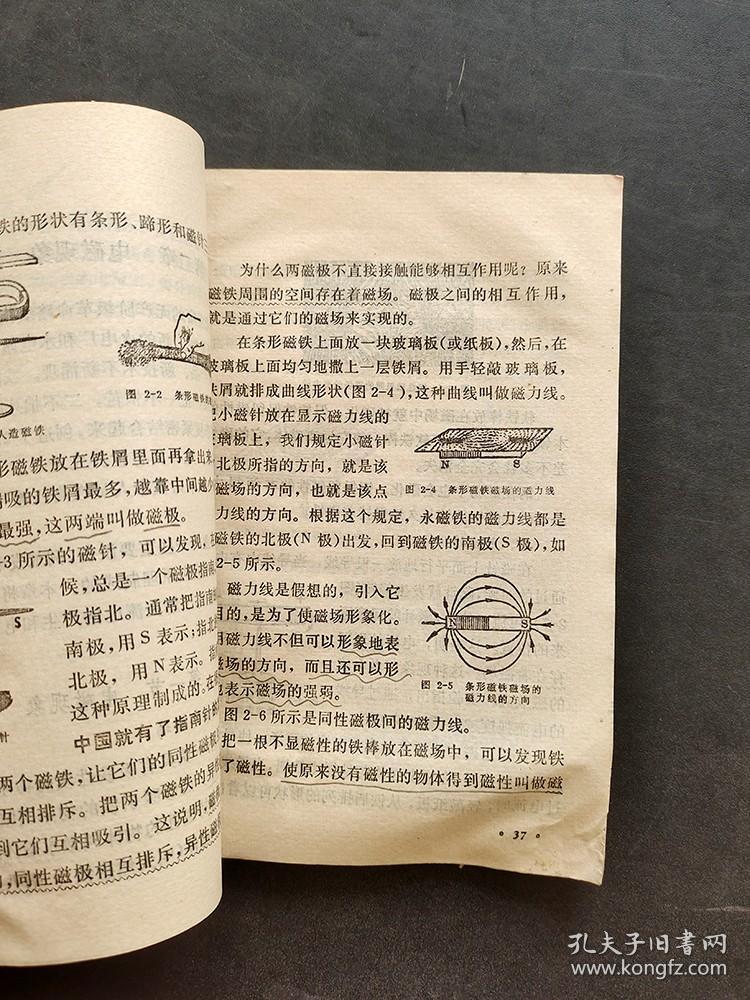 铁的形状有条形、蹄形和磁针
图 2-2 条形磁铁
人造磁铁
形磁铁放在铁屑里面再拿出来
吸的铁屑最多,越靠中间越少
最强,这两端叫做磁极。
-3 所示的磁针,可以发现,
候,总是一个磁极指南
极指北。通常把指南
S
南极,用 S 表示;指北
北极,用 N 表示。指
这种原理制成的。在
针
中国就有了指南针的
两个磁铁,让它们的同性磁极
互相排斥。把两个磁铁的异性
到它们互相吸引。这说明,磁
,同性磁极相互排斥,异性磁
为什么两磁极不直接接触能够相互作用呢?原来
磁铁周围的空间存在着磁场。磁极之间的相互作用,
就是通过它们的磁场来实现的。
在条形磁铁上面放一块玻璃板(或纸板),然后,在
玻璃板上面均匀地撒上一层铁屑。用手轻敲玻璃板,
铁屑就排成曲线形状(图 2-4),这种曲线叫做磁力线。
把小磁针放在显示磁力线的
玻璃板上,我们规定小磁针
北极所指的方向,就是该
磁场的方向,也就是该点
N S
图 2-4 条形磁铁磁场的磁力线
力线的方向。根据这个规定,永磁铁的磁力线都是
磁铁的北极(N 极)出发,回到磁铁的南极(S 极),如
2-5 所示。
磁力线是假想的,引入它
目的,是为了使磁场形象化。
用磁力线不但可以形象地表
磁场的方向,而且还可以形
也表示磁场的强弱。
N S
图 2-5 条形磁铁磁场的
磁力线的方向
图 2-6 所示是同性磁极间的磁力线。
把一根不显磁性的铁棒放在磁场中,可以发现铁
了磁性。使原来没有磁性的物体得到磁性叫做磁
• 37 •
孔夫子旧書网
www.kongfz.com